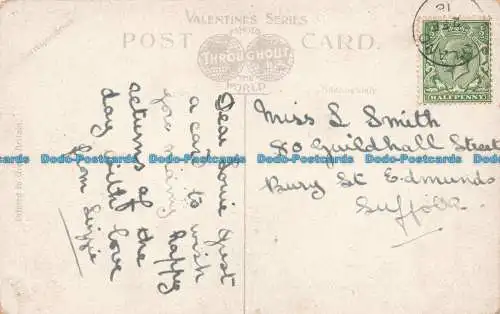 VALENTINES SERIES
FAMOUS
POST CARD.
THROUGHOUT
THE
WORLD
HALFPENNY
Dear Louie Just
a card to wish
you many happy
returns of the
day with love
from Lizzie
Miss L Smith
80 Guildhall Street
Bury St Edmunds
Suffolk
Printed in Great Britain
Dodo-Postcards Dodo-Postcards Dodo-Postcards Dodo-Postcards